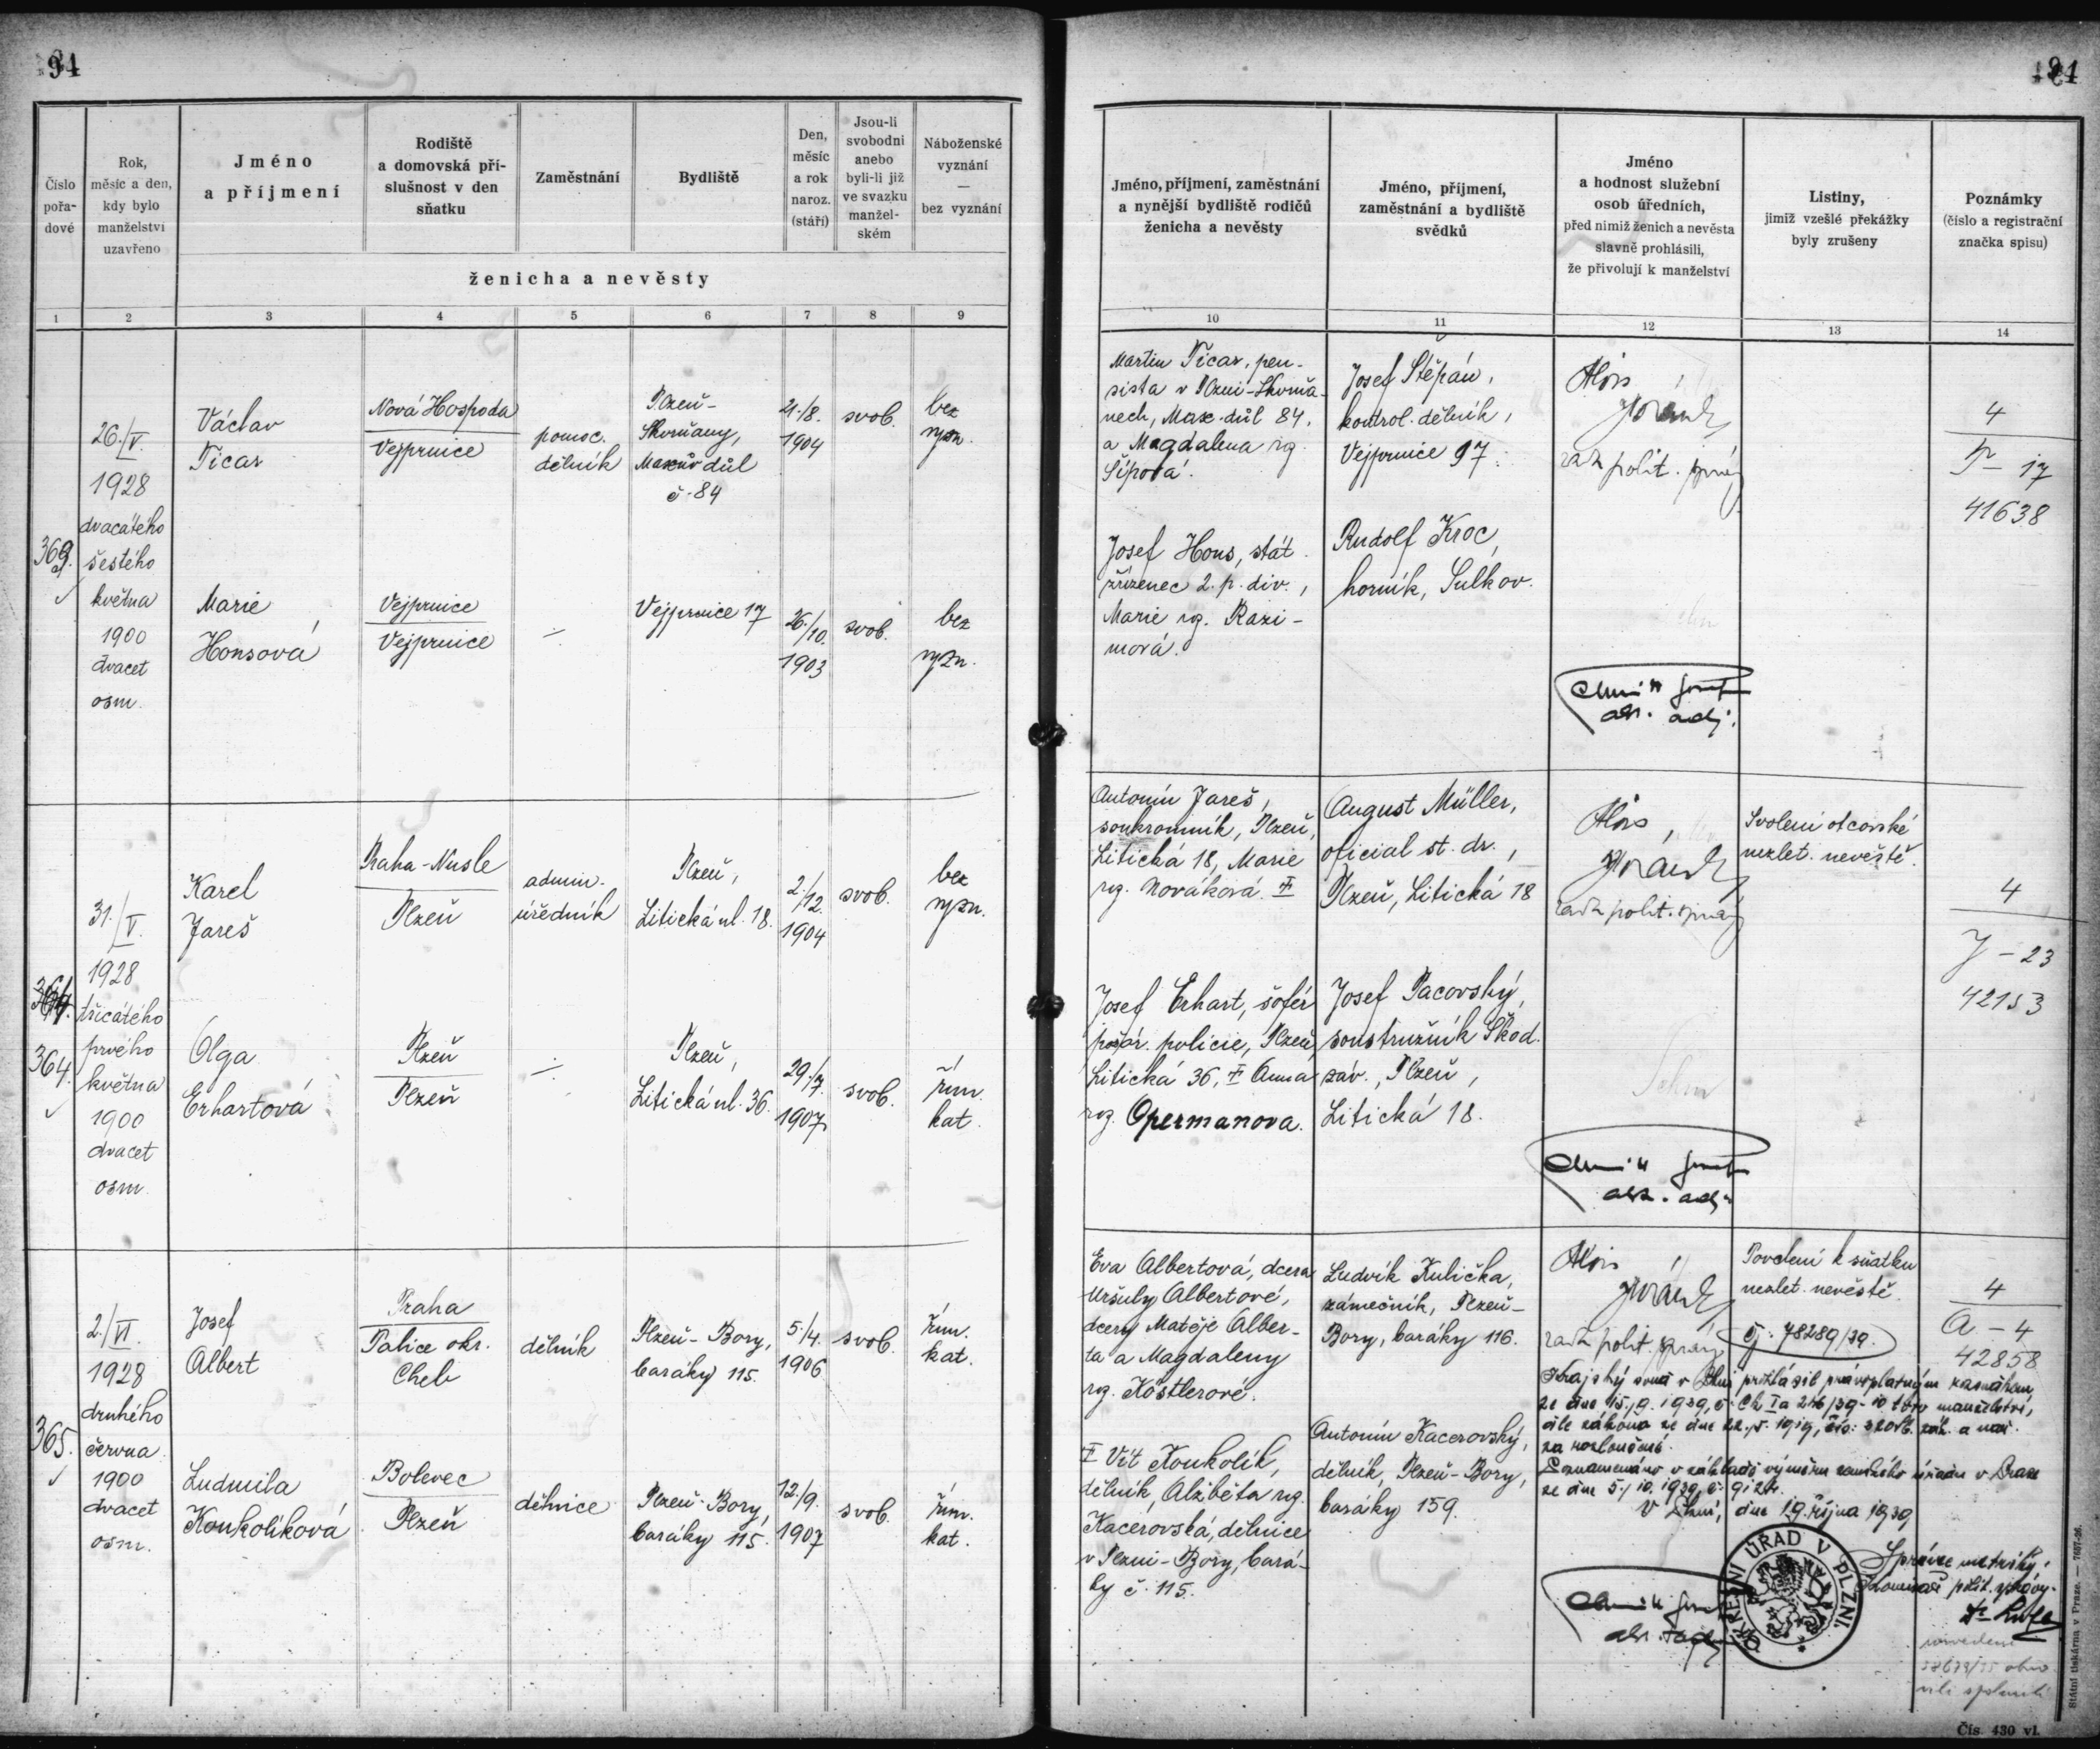 94
Číslo pořa- dové
Rok, měsíc a den, kdy bylo manželství uzavřeno
Jméno a příjmení
Rodiště a domovská pří- slušnost v den sňatku
Zaměstnání
Bydliště
Den, měsíc a rok naroz. (stáří)
Jsou-li svobodni anebo byli-li již ve svazku manžel- ském
Náboženské vyznání — bez vyznání
ženicha a nevěsty
1 2 3 4 5 6 7 8 9
363.
26./V.
1928
dvacátého
šestého
května
1900
dvacet
osm.
Václav
Ticar
Nová Hospoda
Vejprnice
pomoc.
dělník
Plzeň-
Skvrňany,
Maxův důl
č. 84
21./8.
1904
svob.
bez
vyzn.
Marie
Honsová
Vejprnice
Vejprnice
Vejprnice 17
26./10.
1903
svob.
bez
vyzn.
364.
31./V.
1928
třicátého
prvého
května
1900
dvacet
osm.
Karel
Jareš
Praha-Nusle
Plzeň
admin.
úředník
Plzeň,
Litická ul. 18.
2./12.
1904
svob.
bez
vyzn.
Olga
Erhartová
Plzeň
Plzeň
Plzeň,
Litická ul. 36.
29./7.
1907
svob.
řím.
kat.
365.
2./VI.
1928
druhého
června
1900
dvacet
osm.
Josef
Albert
Praha
Palice okr.
Cheb
dělník
Plzeň-Bory,
baráky 115.
5./4.
1906
svob.
řím.
kat.
Ludmila
Koukolíková
Bolevec
Plzeň
dělnice
Plzeň-Bory,
baráky 115.
12./9.
1907
svob.
řím.
kat.
Jméno, příjmení, zaměstnání a nynější bydliště rodičů ženicha a nevěsty
Jméno, příjmení, zaměstnání a bydliště svědků
Jméno a hodnost služební osob úředních, před nimiž ženich a nevěsta slavně prohlásili, že přivolují k manželství
Listiny, jimiž vzešlé překážky byly zrušeny
Poznámky (číslo a registrační značka spisu)
10 11 12 13 14
Martin Ticar, pen-
sista v Plzni-Skvrňa-
nech, Max. důl 84,
a Magdalena rz.
Šípová.
Josef Štěpán,
kontrol. dělník,
Vejprnice 97.
Alois
rada polit. správy
4
T - 17
41638
Josef Hons, stát.
zřízenec 2. p. div.,
Marie rz. Razi-
mová.
Rudolf Kroc,
horník, Sulkov.
adj.
Antonín Jareš,
soukromník, Plzeň,
Litická 18, Marie
rz. Nováková.
August Müller,
oficial st. dr.,
Plzeň, Litická 18
Alois
rada polit. správy
Svolení otcovské
nezlet. nevěstě.
4
J - 23
42153
Josef Erhart, šofér
požár. policie, Plzeň,
Litická 36, Anna
rz. Opermanova.
Josef Pacovský,
soustružník Škod.
záv., Plzeň,
Litická 18.
adj.
Eva Albertová, dcera
Uršuly Albertové,
dcery Matěje Alber-
ta a Magdaleny
rz. Köstlerové.
Ludvík Kulička,
zámečník, Plzeň-
Bory, baráky 116.
Alois
rada polit. správy
Povolení k sňatku
nezlet. nevěstě.
4
A - 4
42858
čj. 78289/39.
Krajský soud v Plzni prohlásil právoplatným rozsudkem
ze dne 15./9. 1939, č. Ck Ia 246/39-10 toto manželství,
dle zákona ze dne 22./5. 1919, čís. 320 Sb. zák. a nař.
za rozloučené.
Poznamenáno v základě výměru zemského úřadu v Praze
ze dne 5./10. 1939, č.
V Plzni, dne 19. října 1939
Správce matriky:
Komisař polit. správy
Vít Koukolík,
dělník, Alžběta rz.
Kacerovská, dělnice
v Plzni-Bory, bará-
ky č. 115.
Antonín Kacerovský,
dělník, Plzeň-Bory,
baráky 159.
OKRESNÍ ÚŘAD V PLZNI.
Státní tiskárna v Praze. — 7657-26.
Čís. 430 vl.